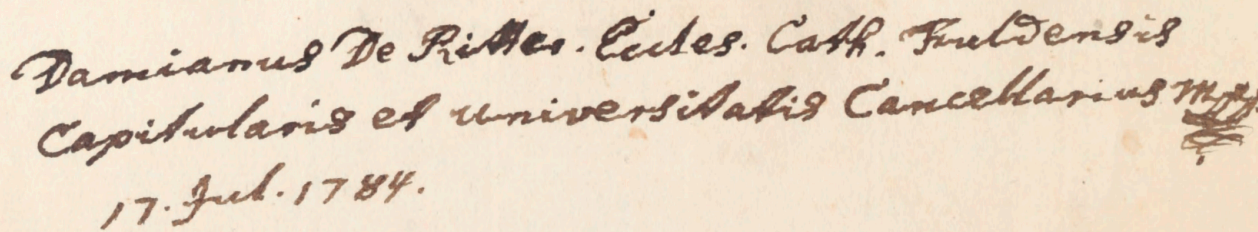 Damianus De Ritter. Eccles. Cath. Fuldensis
Capitularis et Universitatis Cancellarius mpp
17. Jul. 1784.